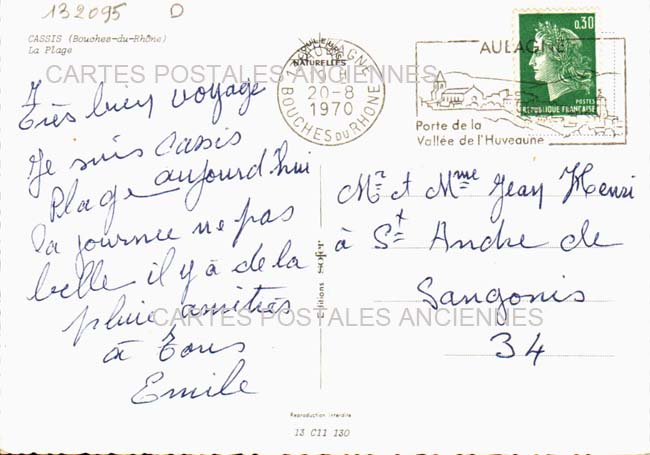 132095 D
CASSIS (Bouches-du-Rhône)
La Plage
COULEURS
NATURELLES
AUBAGNE
20-8
1970
BOUCHES DU RHONE
AUBAGNE
Porte de la
Vallée de l'Huveaune
0,30
POSTES
REPUBLIQUE FRANÇAISE
CARTES POSTALES ANCIENNES
Très bien voyagé
Je suis Cassis
Plage aujourd'hui
la journée ne pas
belle il y à de la
pluie amitiés
à Tous
Emile
Mr et Mme Jean Henri
à St André de
Sangonis
34
CARTES POSTALES ANCIENNES
Editions
Reproduction interdite
13 C11 130